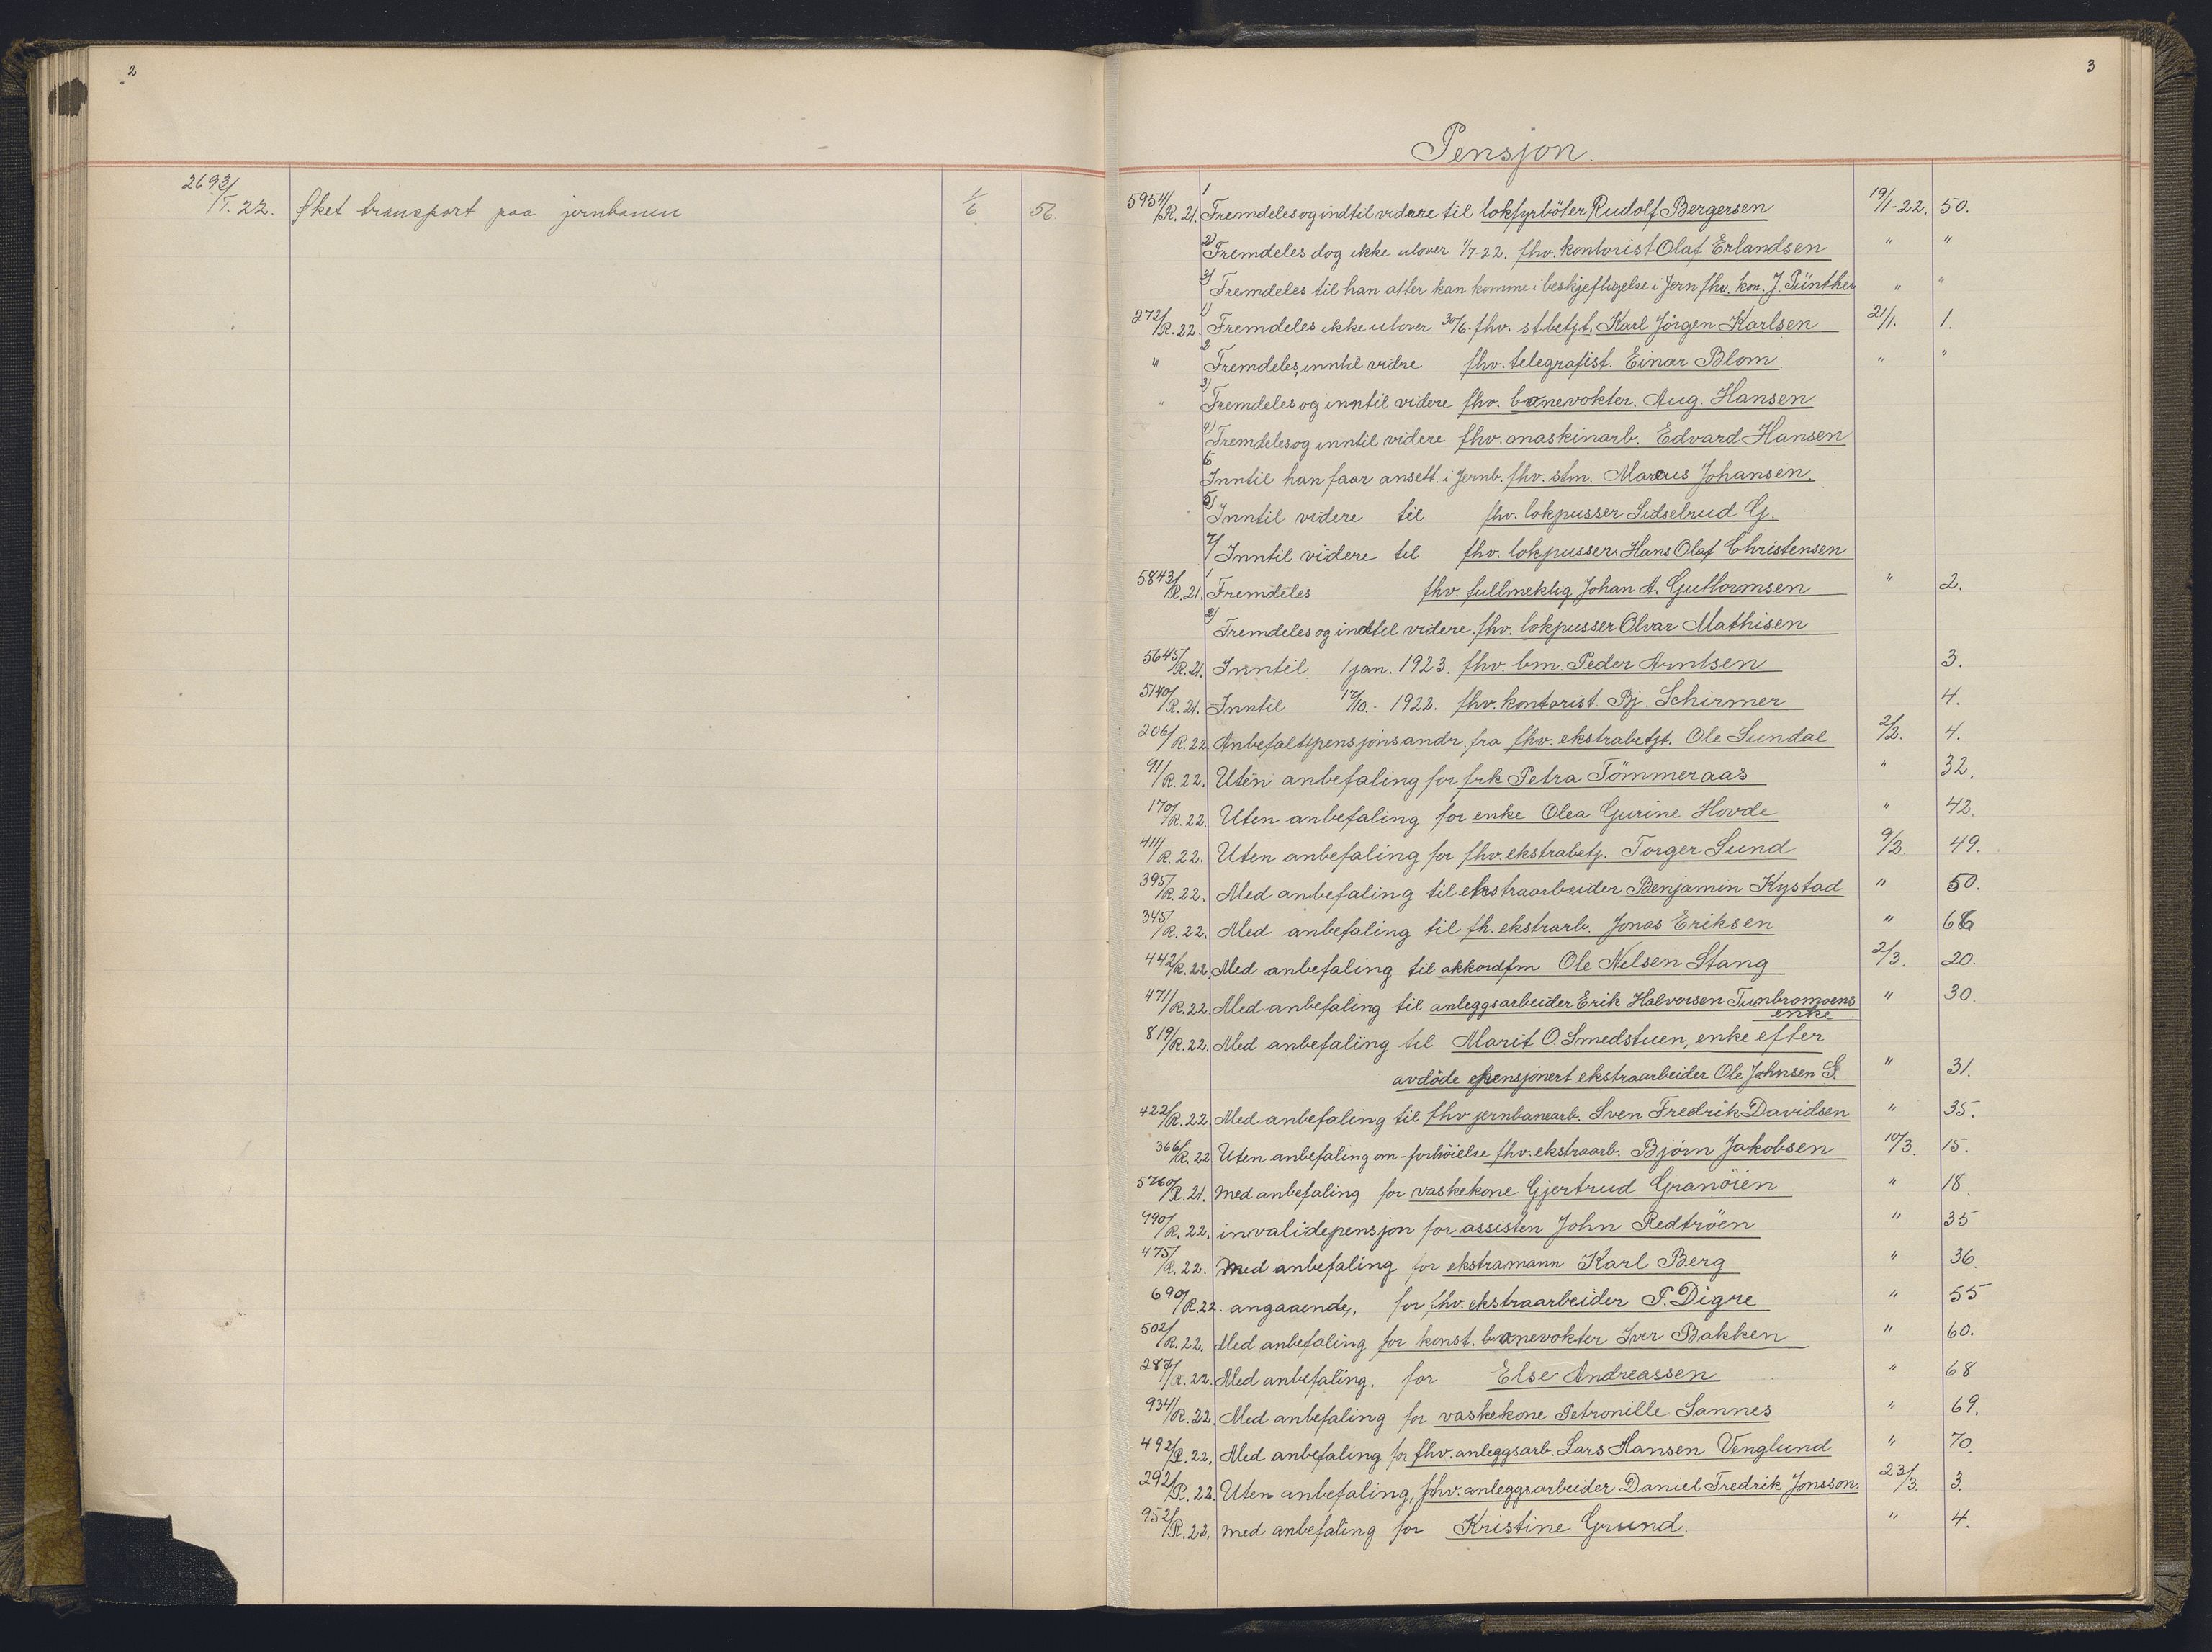 2
2693/T. 22. Øket transport paa jernbanen 1/6 56.
3
Pensjon.
5954/R. 21. 1 Fremdeles og indtil videre til lokfyrböter Rudolf Bergersen 19/1-22. 50.
2) Fremdeles dog ikke utover 1/7-22. fhv. kontorist Olaf Erlandsen " "
3) Fremdeles til han atter kan komme i beskjeftigelse i Jern fhv. kon. J. Günther " "
272/R. 22. 1) Fremdeles ikke utover 30/6. fhv. stbetjt. Karl Jörgen Karlsen 21/1. 1.
" 2 Fremdeles, inntil vidre fhv. telegrafist. Einar Blom " "
" 3) Fremdeles og inntil videre fhv. banevokter. Aug. Hansen
4) Fremdeles og inntil videre fhv. maskinarb. Edvard Hansen
6 Inntil han faar ansett. i Jernb. fhv. stm. Marius Johansen.
5) Inntil videre til fhv. lokpusser Sidselrud G.
7/ Inntil videre til fhv. lokpusser. Hans Olaf Christensen
5843/R. 21. 1 Fremdeles fhv. fullmektig Johan A. Guttormsen " 2.
2) Fremdeles og indtil videre. fhv. lokpusser Olvar Mathisen
5645/R. 21. Inntil 1 jan. 1923. fhv. bm. Peder Arntsen 3.
5140/R. 21. Inntil 17/10.- 1922. fhv. kontorist. Bj. Schirmer 4.
206/R. 22. Anbefalt pensjonsandr. fra fhv. ekstrabetjt. Ole Sundal 2/2. 4.
91/R. 22. Uten anbefaling for frk Petra Tömmeraas " 32.
170/R. 22. Uten anbefaling for enke Olea Gurine Hovde " 42.
411/R. 22. Uten anbefaling for fhv. ekstrabetj. Torger Sund 9/2. 49.
395/R. 22. Med anbefaling til ekstraarbeider Benjamin Kystad " 50.
345/R. 22. Med anbefaling til fh. ekstrarb. Jonas Eriksen "
442/R. 22. Med anbefaling til akkordfm Ole Nelsen Stang 2/3. 20.
471/R. 22. Med anbefaling til anleggsarbeider Erik Halvorsen Tunbromoens " 30.
enke
819/R. 22. Med anbefaling til Marit O. Smedstuen, enke efter
avdöde pensjonert ekstraarbeider Ole Johnsen S. " 31.
422/R. 22. Med anbefaling til fhv jernbanearb. Sven Fredrik Davidsen " 35.
366/R. 22. Uten anbefaling om-forhöielse fhv. ekstraarb. Björn Jakobsen 10/3. 15.
5760/R. 21. med anbefaling for vaskekone Gjertrud Granöien " 18.
490/R. 22. invalidepensjon for assisten John Redtröen " 35
475/R. 22. med anbefaling for ekstramann Karl Berg " 36.
690/R. 22. angaaende, for fhv. ekstraarbeider P. Digre " 55
502/R. 22. Med anbefaling for konst. banevokter Iver Bakken " 60.
287/R. 22. Med anbefaling. for Else Andreassen " 68
934/R. 22. Med anbefaling for vaskekone Petronille Sannes " 69.
492/R. 22. Med anbefaling for fhv. anleggsarb. Lars Hansen Venglund " 70.
292/R. 22. Uten anbefaling, fhv. anleggsarbeider Daniel Fredrik Jonsson. 23/3. 3.
952/R. 22. med anbefaling for Kristine Grund. " 4.